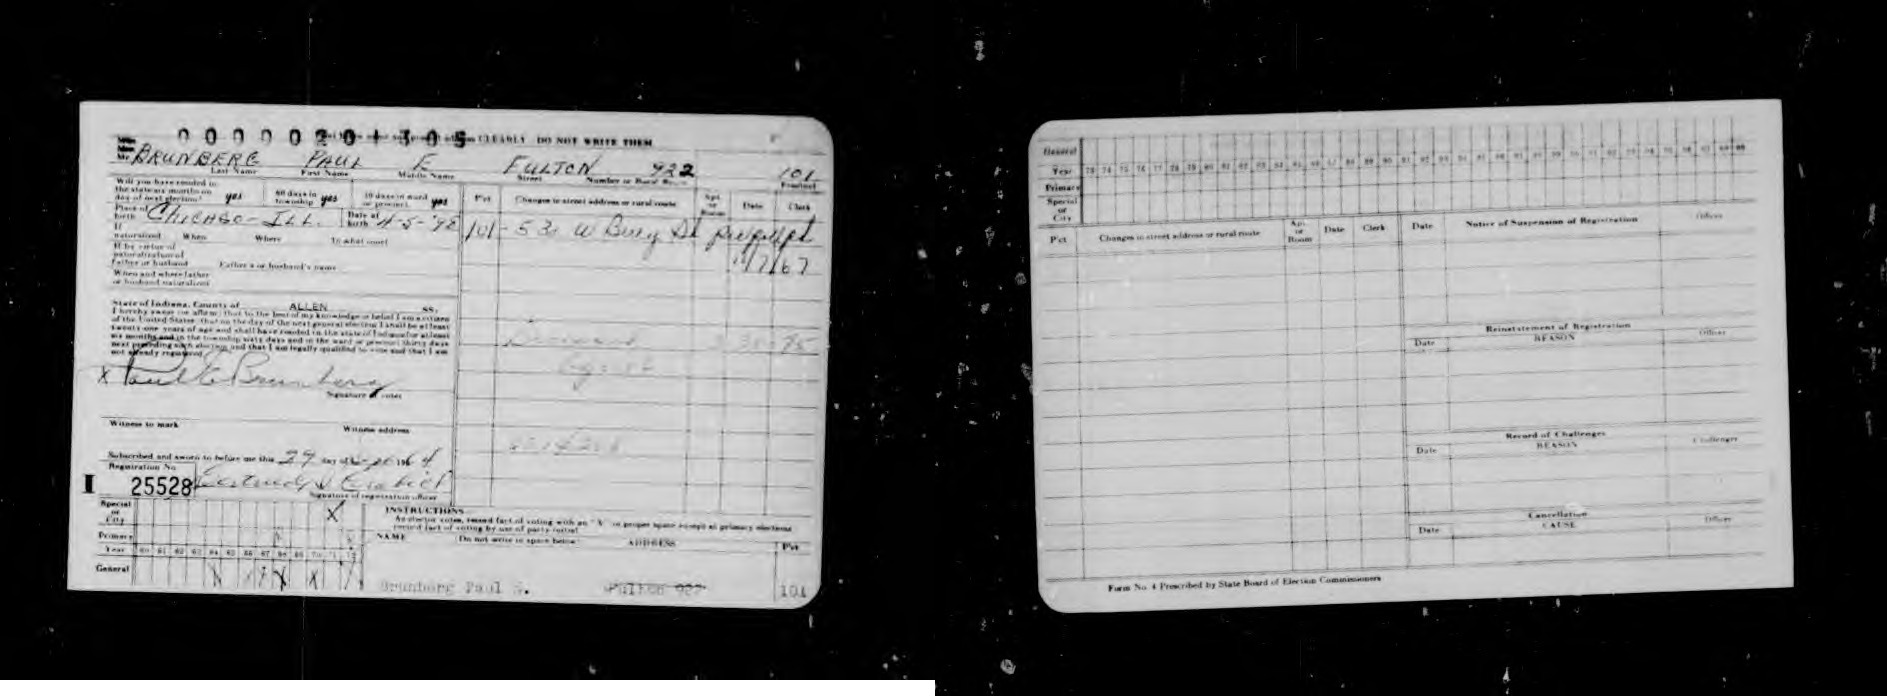 0000020+305 CLEARLY DO NOT WRITE THEM
Mr. BRUNBERG PAUL E FULTON 922 101
Last Name First Name Middle Name Street Number or Rural Precinct
Will you have resided in
the state six months on
day of next election? yes 60 days in township yes 30 days in ward or precinct yes
Pct Changes in street address or rural route Apt. or Room Date Clerk
Place of birth CHICAGO - ILL. Date of birth
101 - W Berry St
11/7/67
If naturalized When Where In what court
If by virtue of
naturalization of
father or husband Father's or husband's name
When and where father
or husband naturalized
State of Indiana, County of ALLEN SS.
I hereby swear (or affirm) that to the best of my knowledge or belief I am a citizen
of the United States, that on the day of the next general election I shall be at least
twenty-one years of age and shall have resided in the state of Indiana for at least
six months and in the township sixty days and in the ward or precinct thirty days
next preceding such election and that I am legally qualified to vote and that I am
not already registered
X Paul E Brunberg
Signature of voter
Witness to mark Witness address
Subscribed and sworn to before me this 29 day of 1964
Registration No.
I 25528
Signature of registration officer
Special or City X
Primary
Year 60 61 62 63 64 65 66 67 68 69 70 71 72
General X X X
INSTRUCTIONS
As elector votes, record fact of voting with an "X" in proper space except at primary elections
record fact of voting by use of party initial
NAME Do not write in space below ADDRESS Pct
Brunberg Paul E. Fulton 922 101
General
Year
Primary
Special
or
City
Pct Changes in street address or rural route Apt. or Room Date Clerk Date Notice of Suspension of Registration Officer
Reinstatement of Registration
Date REASON Officer
Record of Challenges
Date REASON Challenger
Cancellation
Date CAUSE Officer
Form No. 4 Prescribed by State Board of Election Commissioners